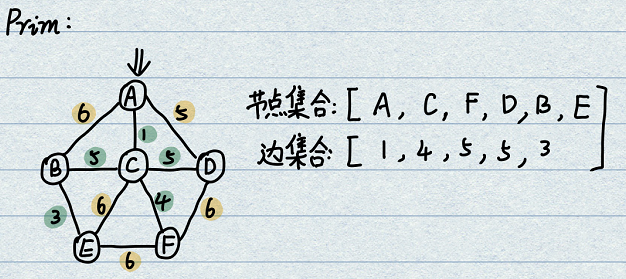 Prim:
A
6
5
1
B
5
C
5
D
3
6
4
6
E
F
6
节点集合: [ A, C, F, D, B, E ]
边集合: [ 1, 4, 5, 5, 3 ]